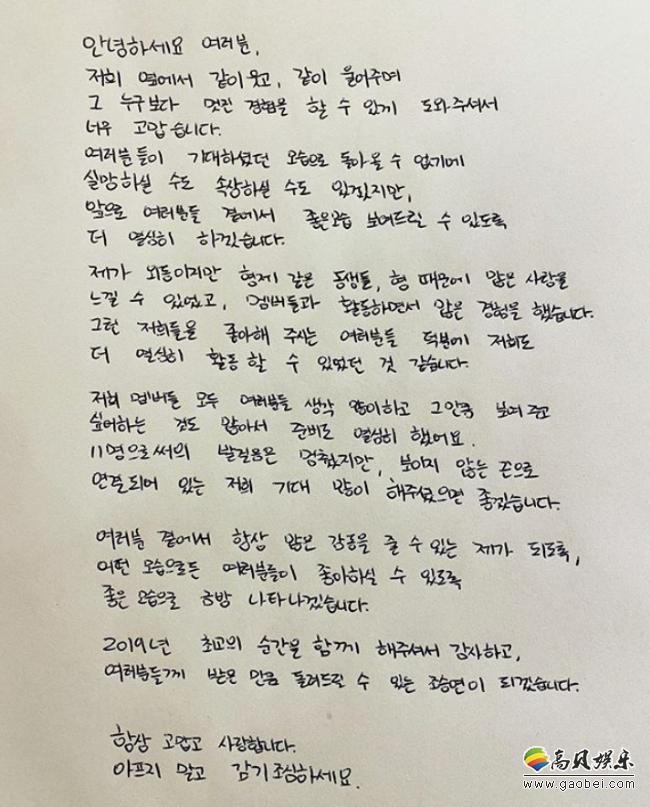 안녕하세요 여러분,
저희 옆에서 같이 웃고, 같이 울어주며
그 누구보다 멋진 경험을 할 수 있게 도와주셔서
너무 고맙습니다.
여러분들이 기대하셨던 모습으로 돌아올 수 없기에
실망하실 수도 속상하실 수도 있겠지만,
앞으로 여러분들 곁에서 좋은모습 보여드릴 수 있도록
더 열심히 하겠습니다.
제가 외동이지만 형제 같은 동생들, 형 때문에 많은 사랑을
느낄 수 있었고, 멤버들과 활동하면서 많은 경험을 했습니다.
그런 저희들을 좋아해 주시는 여러분들 덕분에 저희도
더 열심히 활동할 수 있었던 것 같습니다.
저희 멤버들 모두 여러분들 생각 많이하고 그만큼 보여주고
싶어하는 것도 많아서 준비도 열심히 했어요.
11명으로써의 발걸음은 멈췄지만, 보이지 않는 끈으로
연결되어 있는 저희 기대 많이 해주셨으면 좋겠습니다.
여러분 곁에서 항상 많은 감동을 줄 수 있는 제가 되도록,
어떤 모습으로든 여러분들이 좋아하실 수 있도록
좋은 모습으로 금방 나타나겠습니다.
2019년 최고의 순간을 함께 해주셔서 감사하고,
여러분들께 받은 만큼 돌려드릴 수 있는 조승연이 되겠습니다.
항상 고맙고 사랑합니다.
아프지 말고 감기조심하세요.
高贝娱乐
www.gaobei.com